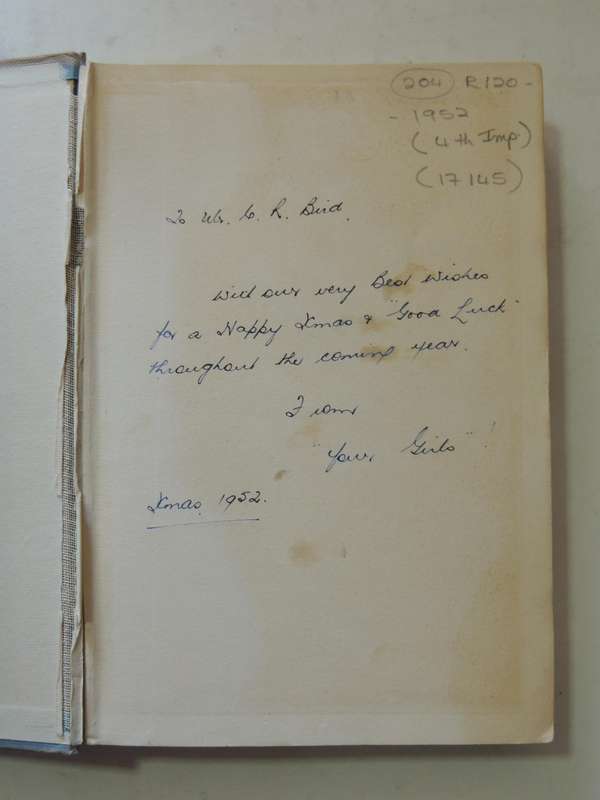 204 R120 -
- 1952
(4th Imp.)
(17145)
To Mr. C. R. Bird.
With our very Best Wishes
for a Happy Xmas & "Good Luck"
throughout the coming year.
From
"Your Girls"!
Xmas. 1952.